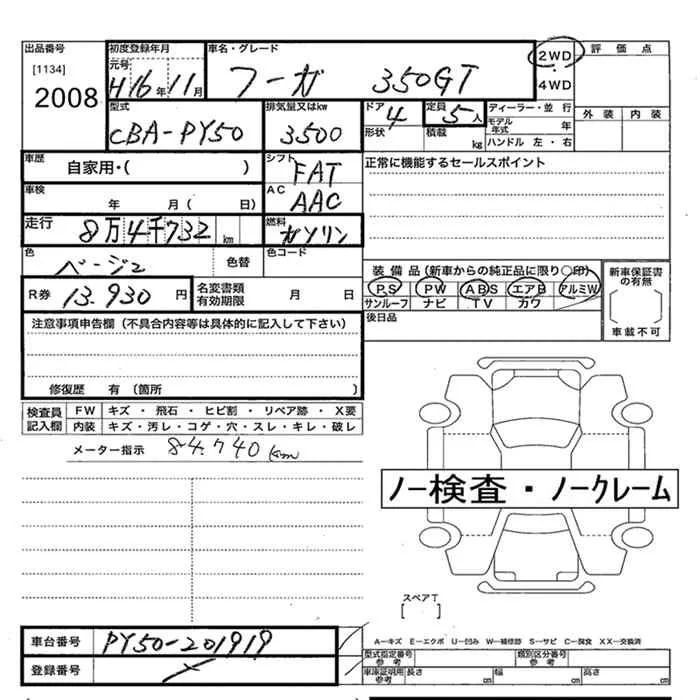 出品番号 初度登録年月 車名・グレード 2WD 評価点
[1134] 元号 ・
2008 H16年11月 フーガ 350GT 4WD
型式 排気量又はkw ドア 定員 ディーラー・並行 外装 内装
CBA-PY50 3500 4 5人 モデル年式 年
形状 積載 kg ハンドル 左・右
車歴 自家用・( ) シフト FAT 正常に機能するセールスポイント
車検 年 月( 日) AC AAC
走行 8万4千732km 燃料 ガソリン
色 ベージュ 色替 色コード
装備品(新車からの純正品に限り○印) 新車保証書の有無
R券 13.930円 名変書類有効期限 月 日 PS PW ABS エアB アルミW
サンルーフ ナビ TV カワ
注意事項申告欄(不具合内容等は具体的に記入して下さい) 後日品 車載不可
修復歴 有(箇所 )
検査員記入欄 FW キズ・飛石・ヒビ割・リペア跡・X要
内装 キズ・汚レ・コゲ・穴・スレ・キレ・破レ
メーター指示 84.740km
ノー検査・ノークレーム
スペアT
[ ]
車台番号 PY50-201919 A―キズ E―エクボ U―凹み W―補修跡 S―サビ C―腐食 XX―交換済
型式指定番号 参考 類別区分番号 参考
登録番号 車庫証明用 参考 長さ cm 幅 cm 高さ cm